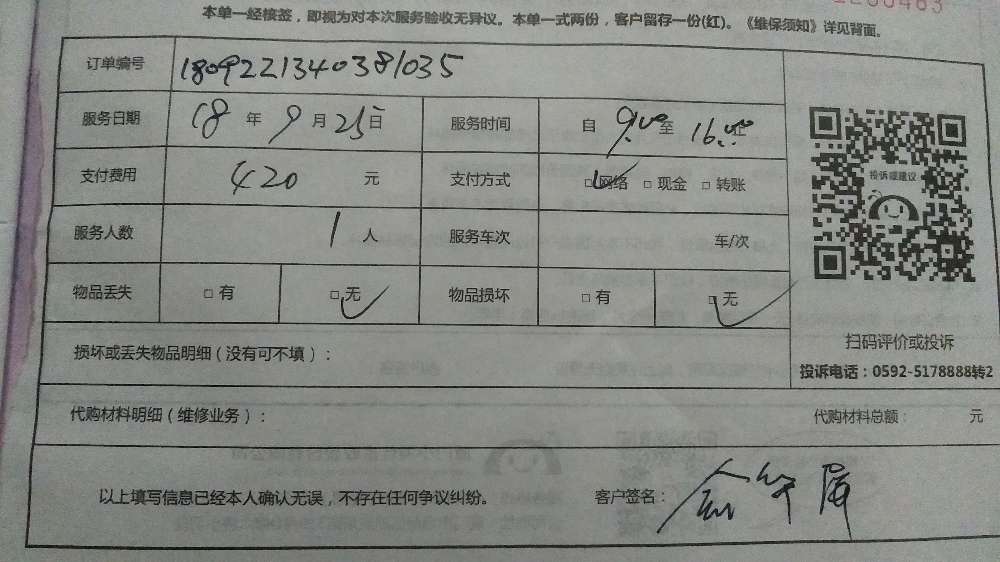 本单一经接签，即视为对本次服务验收无异议。本单一式两份，客户留存一份(红)。《维保须知》详见背面。
订单编号 1809221340381035
服务日期 18 年 9 月 25 日 服务时间 自 9:00 至 16:00 止
支付费用 420 元 支付方式 □网络 □现金 □转账
投诉或建议
服务人数 1 人 服务车次 车/次
物品丢失 □有 □无 物品损坏 □有 □无
扫码评价或投诉
损坏或丢失物品明细（没有可不填）：
投诉电话：0592-5178888转2
代购材料明细（维修业务）： 代购材料总额： 元
以上填写信息已经本人确认无误，不存在任何争议纠纷。 客户签名：